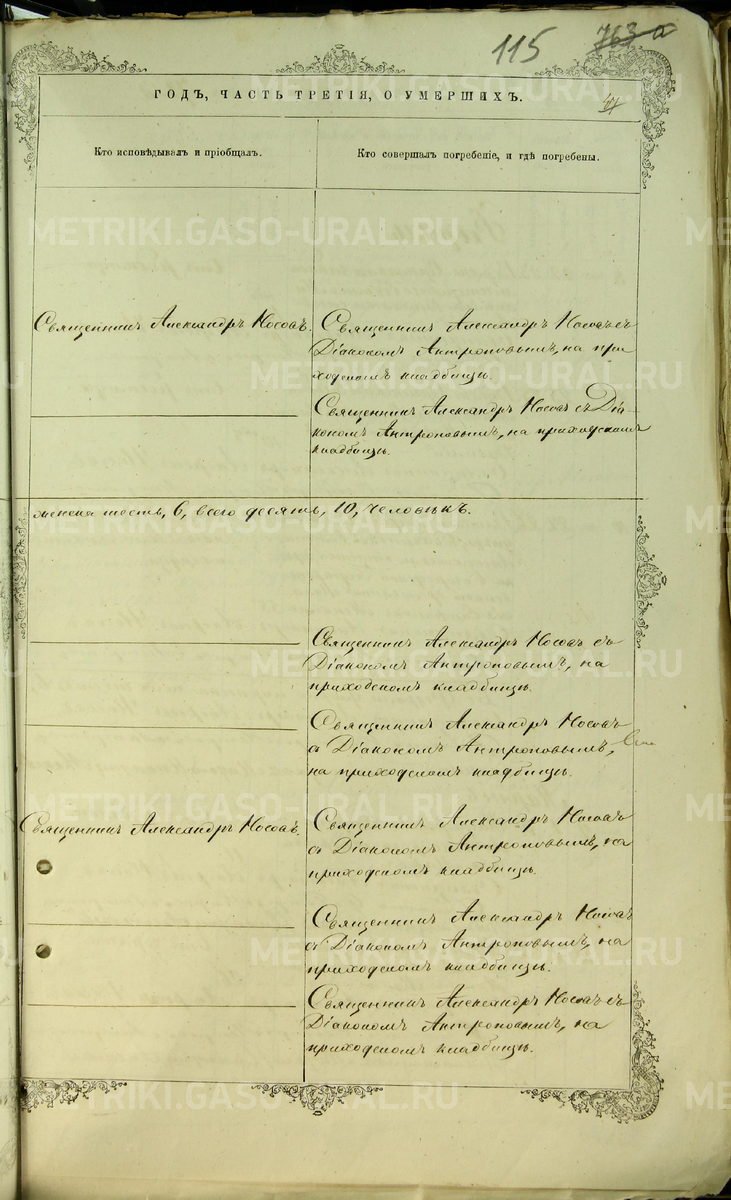 115
763 а
ГОДЪ, ЧАСТЬ ТРЕТІЯ, О УМЕРШИХЪ.
Кто исповѣдывалъ и пріобщалъ.
Кто совершалъ погребеніе, и гдѣ погребены.
Священникъ Александръ Носовъ.
Священникъ Александръ Носовъ съ
Діакономъ Антроповымъ, на при-
ходскомъ кладбищѣ.
Священникъ Александръ Носовъ съ Діа-
кономъ Антроповымъ, на приходскомъ
кладбищѣ.
женска шесть, 6, всего десять, 10, человѣкъ.
Священникъ Александръ Носовъ съ
Діакономъ Антроповымъ, на
приходскомъ кладбищѣ.
Священникъ Александръ Носовъ
съ Діакономъ Антроповымъ,
на приходскомъ кладбищѣ.
Священникъ Александръ Носовъ.
Священникъ Александръ Носовъ
съ Діакономъ Антроповымъ, на
приходскомъ кладбищѣ.
Священникъ Александръ Носовъ
съ Діакономъ Антроповымъ, на
приходскомъ кладбищѣ.
Священникъ Александръ Носовъ съ
Діакономъ Антроповымъ, на
приходскомъ кладбищѣ.
METRIKI.GASO-URAL.RU